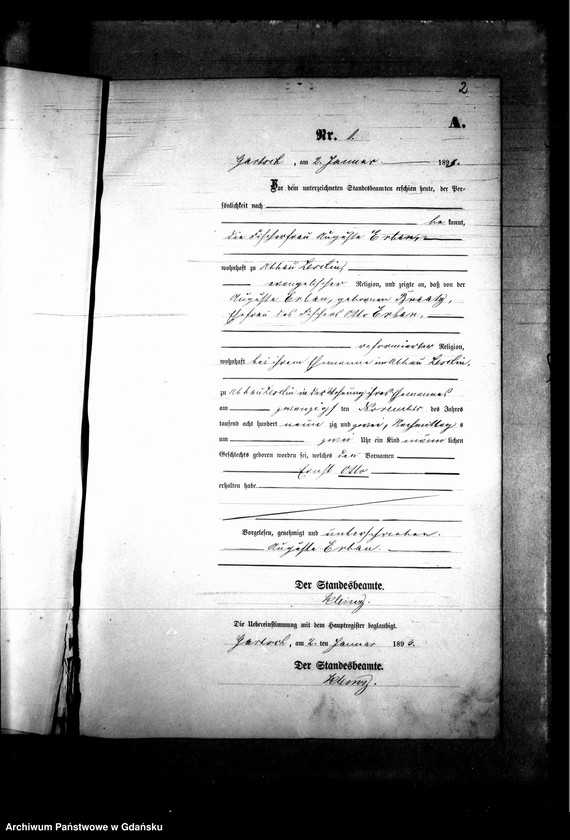 2
A.
Nr. 1.
am 2. Januar 1893.
Vor dem unterzeichneten Standesbeamten erschien heute, der Per-
sönlichkeit nach
be kannt,
die Fischerfrau Auguste Erban,
wohnhaft zu Abbau
evangelischer Religion, und zeigte an, daß von der
Auguste Erban, geborenen Braatz,
Ehefrau des Fischers Otto Erban,
reformierter Religion,
wohnhaft bei ihrem Ehemanne in Abbau
zu Abbau in der Wohnung ihres Ehemannes
am zwanzigsten November des Jahres
tausend acht hundert neun zig und zwei, Nachmittags
um zwei Uhr ein Kind männlichen
Geschlechts geboren worden sei, welches den Vornamen
Ernst Otto
erhalten habe.
Vorgelesen, genehmigt und unterschrieben.
Auguste Erban.
Der Standesbeamte.
Die Uebereinstimmung mit dem Hauptregister beglaubigt.
am 2. ten Januar 1893.
Der Standesbeamte.
Archiwum Państwowe w Gdańsku